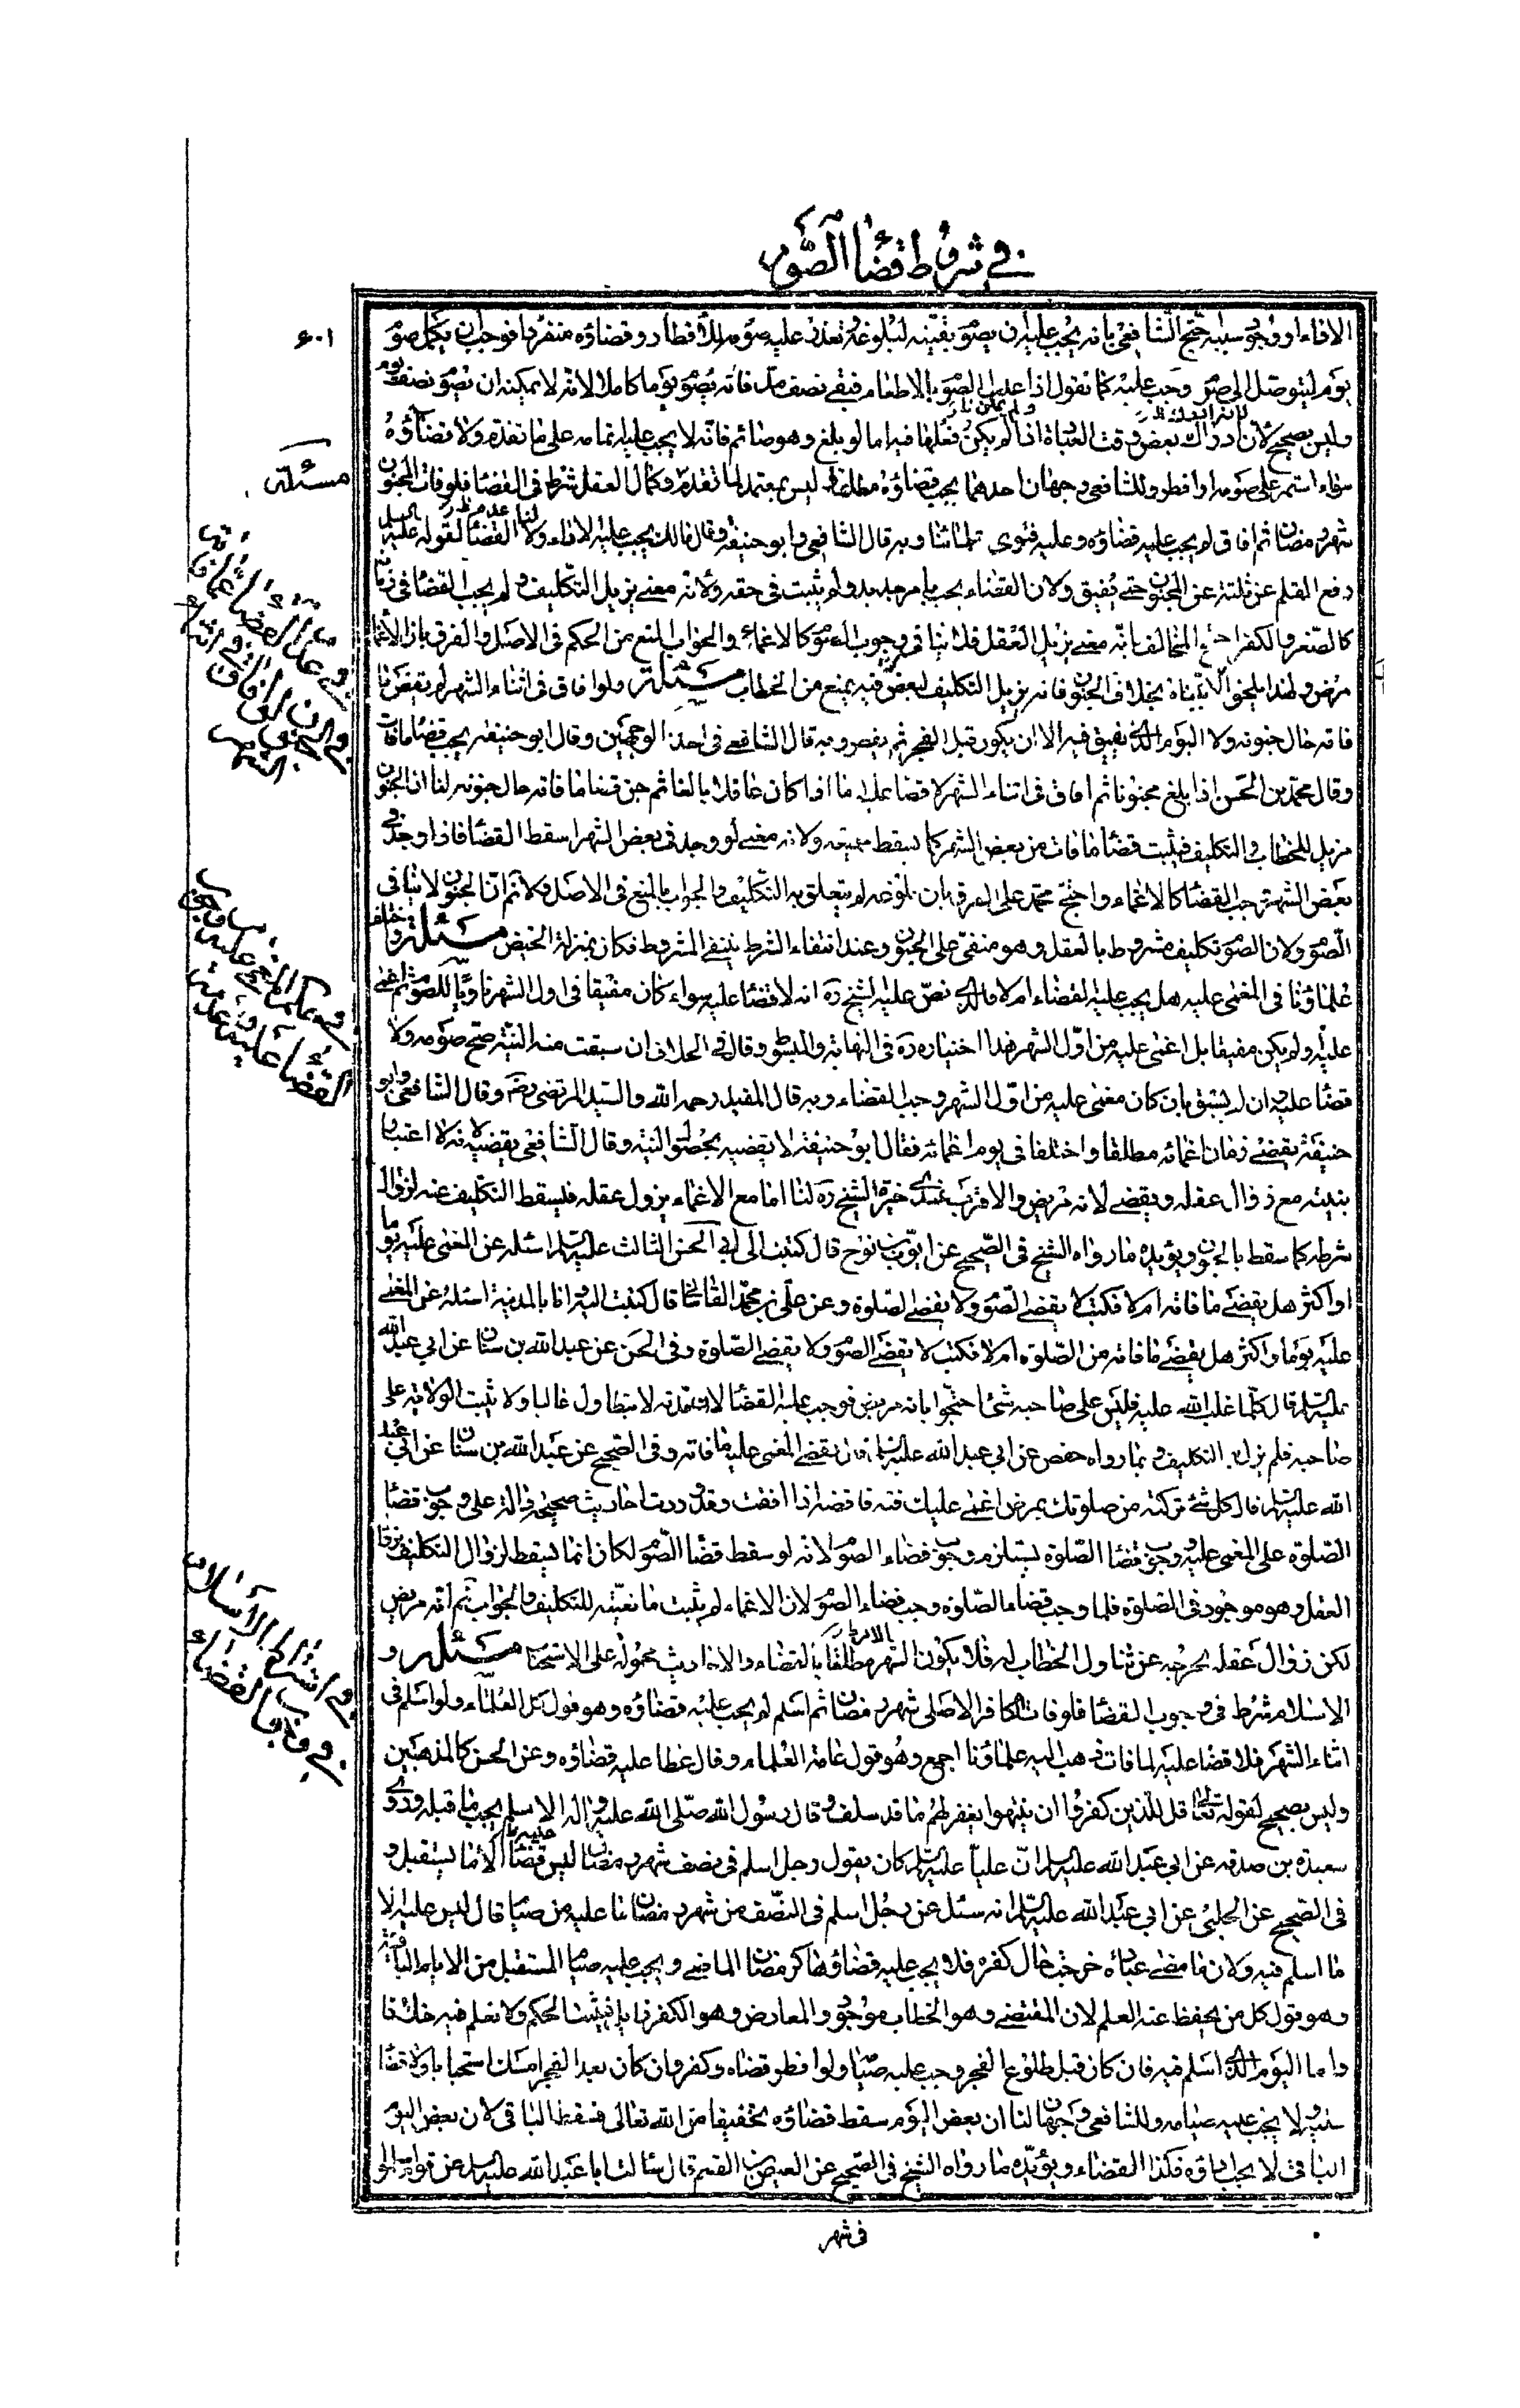 في شروط قضاء الصوم
٦٠١
الافاء او وجود سببه احتج الشافعي بانه يجب عليه ان يصوم بقيته لبلوغه وتعذر عليه صومه الا افطار وقضاؤه منفردا فوجب ان يكمل صوم
يوم ليتوصل الى صوم وجب عليه كما نقول اذا عدل الصوم بالاطعام فبقي نصف مد فانه يصوم يوما كاملا لانه لا يمكنه ان يصوم نصف يوم
وليس بصحيح لان ادراك بعض وقت العبادة اذا لم يمكن فعلها فيه اما لو بلغ وهو صائم فانه لا يجب عليه تمامه على ما تقدم ولا قضاؤه
مسئلة
سواء استمر على صومه او افطر وللشافعي وجهان احدهما يجب قضاؤه مطلقا وليس بمعتمد لما تقدم وكمال العقل شرط في القضا فلو فات المجنون
شهر رمضان ثم افاق لم يجب عليه قضاؤه وعليه فتوى علمائنا وبه قال الشافعي وابو حنيفة وقال مالك يجب عليه لافاء ولا القضا لقوله عليه السلم
رفع القلم عن ثلثة عن المجنون حتى يفيق ولان القضاء يجب بامر جديد ولم يثبت في حقه ولانه معنى يزيل التكليف ولم يجب القضا في زمانه
كالصغر والكفر احتج المخالف بانه معنى يزيل العقل فلا ينافي وجوب الصوم كالاغماء والجواب المنع من الحكم في الاصل والفرق بان الاغماء
مرض ولهذا يلحق الانبياء بخلاف الجنون فانه يزيل التكليف لنقص فيه يمنع من الخطاب مسئلة ولو افاق في اثناء الشهر لم يقض ما
فاته حال جنونه ولا اليوم الذي يفيق فيه الا ان يكون قبل الفجر ثم يفطر وبه قال الشافعي في احد الوجهين وقال ابو حنيفة يجب قضاء ما فات
وقال محمد بن الحسن اذا بلغ مجنونا ثم افاق في اثناء الشهر لا قضا عليه اما اذا كان عاقلا بالغا ثم جن قضا ما فاته حال جنونه لنا ان الجنون
مزيل للخطاب والتكليف فيثبت قضا ما فات من بعض الشهر كما يسقط جميعه ولانه معنى لو وجد في بعض الشهر اسقط القضا فاذا وجد في
بعض الشهر وجب القضا كالاغماء واحتج محمد على الفرق بان بلوغه لم يتعلق به التكليف والجواب بالمنع في الاصل ولا نم ان الجنون لا ينافي
الصوم ولان الصوم تكليف مشروط بالعقل وهو منفي على الجنون وعند انتفاء الشرط ينتفي المشروط فكان بمنزلة الحيض مسئلة واختلف
علماؤنا في المغمى عليه هل يجب عليه القضاء ام لا فالذي نص عليه الشيخ ره انه لا قضا عليه سواء كان مفيقا في اول الشهر ناويا للصوم ثم اغمي
عليه ولم يكن مفيقا بل اغمى عليه من اول الشهر هذا اختياره ره في النهاية والمبسوط وقال في الخلاف ان سبقت منه النية صح صومه ولا
قضا عليه وان لم يسبق بان كان مغمى عليه من اول الشهر وجب القضاء وبه قال المفيد رحمه الله والسيد المرتضى رضه وقال الشافعي وابو
حنيفة يقضي زمان اغمائه مطلقا واختلفا في يوم اغمائه فقال ابو حنيفة لا يقضيه لحصول النية وقال الشافعي يقضيه لانه لا اعتبار
بنيته مع زوال عقله ويقضي لانه مريض والاقرب عندي خيرة الشيخ ره لنا ان مع الاغماء يزول عقله فيسقط التكليف عنه لزوال
شرطه كما سقط بالجنون ويؤيده ما رواه الشيخ في الصحيح عن ايوب بن نوح قال كتبت الى ابي الحسن الثالث عليه السلم اسئله عن المغمى عليه يوما
او اكثر هل يقضي ما فاته ام لا فكتب لا يقضي الصوم ولا يقضي الصلوة وعن علي بن محمد القاساني قال كتبت اليه وانا بالمدينة اسئله عن المغمى
عليه يوما واكثر هل يقضي ما فاته من الصلوة ام لا فكتب لا يقضي الصوم ولا يقضي الصلوة وفي الحسن عن عبد الله بن سنان عن ابي عبد الله
عليه السلم قال كلما غلب الله عليه فليس على صاحبه شئ احتجوا بانه مريض فوجب عليه القضا لان مدته لا يتطاول غالبا ولا يثبت الولاية على
صاحبه فلم يزل به التكليف وبما رواه حفص عن ابي عبد الله عليه السلم قال يقضي المغمى عليه ما فاته وفي الصحيح عن عبد الله بن سنان عن ابي عبد
الله عليه السلم قال كل شئ تركته من صلوتك بمرض اغمي عليك فته فاقضه اذا افقت وقد وردت احاديث صحيحة دالة على وجوب قضا
الصلوة على المغمى عليه ووجوب قضا الصلوة يستلزم وجوب قضاء الصوم لانه لو سقط قضا الصوم لكان انما يسقط لزوال التكليف بزوال
العقل وهو موجود في الصلوة فلما وجب قضاء الصلوة وجب قضاء الصوم لان الاغماء لم يثبت مانعيته للتكليف والجواب نم انه مريض
لكن زوال عقله يخرجه عن تناول الخطاب له فلا يكون الشهر مطلقا بالقضاء والاحاديث محمولة على الاستحباب مسئلة و
الاسلام شرط في وجوب القضا فلو فات الكافر الاصلى شهر رمضان ثم اسلم لم يجب عليه قضاؤه وهو قول كل العلماء ولو اسلم في
اثناء الشهر فلا قضا عليه لما فات ذهب اليه علماؤنا اجمع وهو قول عامة العلماء وقال عطا عليه قضاؤه وعن الحسن كالمذهبين
وليس بصحيح لقوله تعالى قل للذين كفروا ان ينتهوا يغفر لهم ما قد سلف وقال رسول الله صلى الله عليه واله الاسلم يجب ما قبله وروى
سعدة بن صدقة عن ابي عبد الله عليه السلم ان عليا عليه السلم كان يقول رجل اسلم في نصف شهر رمضان ليس عليه قضا الا ما يستقبل و
في الصحيح عن الحلبي عن ابي عبد الله عليه السلم انه سئل عن رجل اسلم في النصف من شهر رمضان ما عليه من صيام قال ليس عليه الا
ما اسلم فيه ولان ما مضى عبادة خرجت حال كفره فلا يجب عليه قضاؤها كرمضان الماضي ويجب عليه صيام المستقبل من الايام الباقية
وهو قول كل من يحفظ عنه العلم لان المقتضي وهو الخطاب موجود والمعارض وهو الكفر زايل فيثبت الحكم ولا نعلم فيه خلافا
واما اليوم الذي اسلم فيه فان كان قبل طلوع الفجر وجب عليه صيام ولو افطر قضاه وكفر وان كان بعد الفجر امسك استحبابا ولا قضا
لا يجب عليه صيامه وللشافعي وجهان لنا ان بعض اليوم سقط قضاؤه تخفيفا من الله تعالى فسقط الباقي لان بعض اليوم
الباقي لا يجب اداؤه فكذا القضاء ويؤيده ما رواه الشيخ في الصحيح عن العيص بن القسم قال سالت ابا عبد الله عليه السلم عن قوم اسلموا
في شهر
في اشتراط الاسلام
في وجوب القضاء